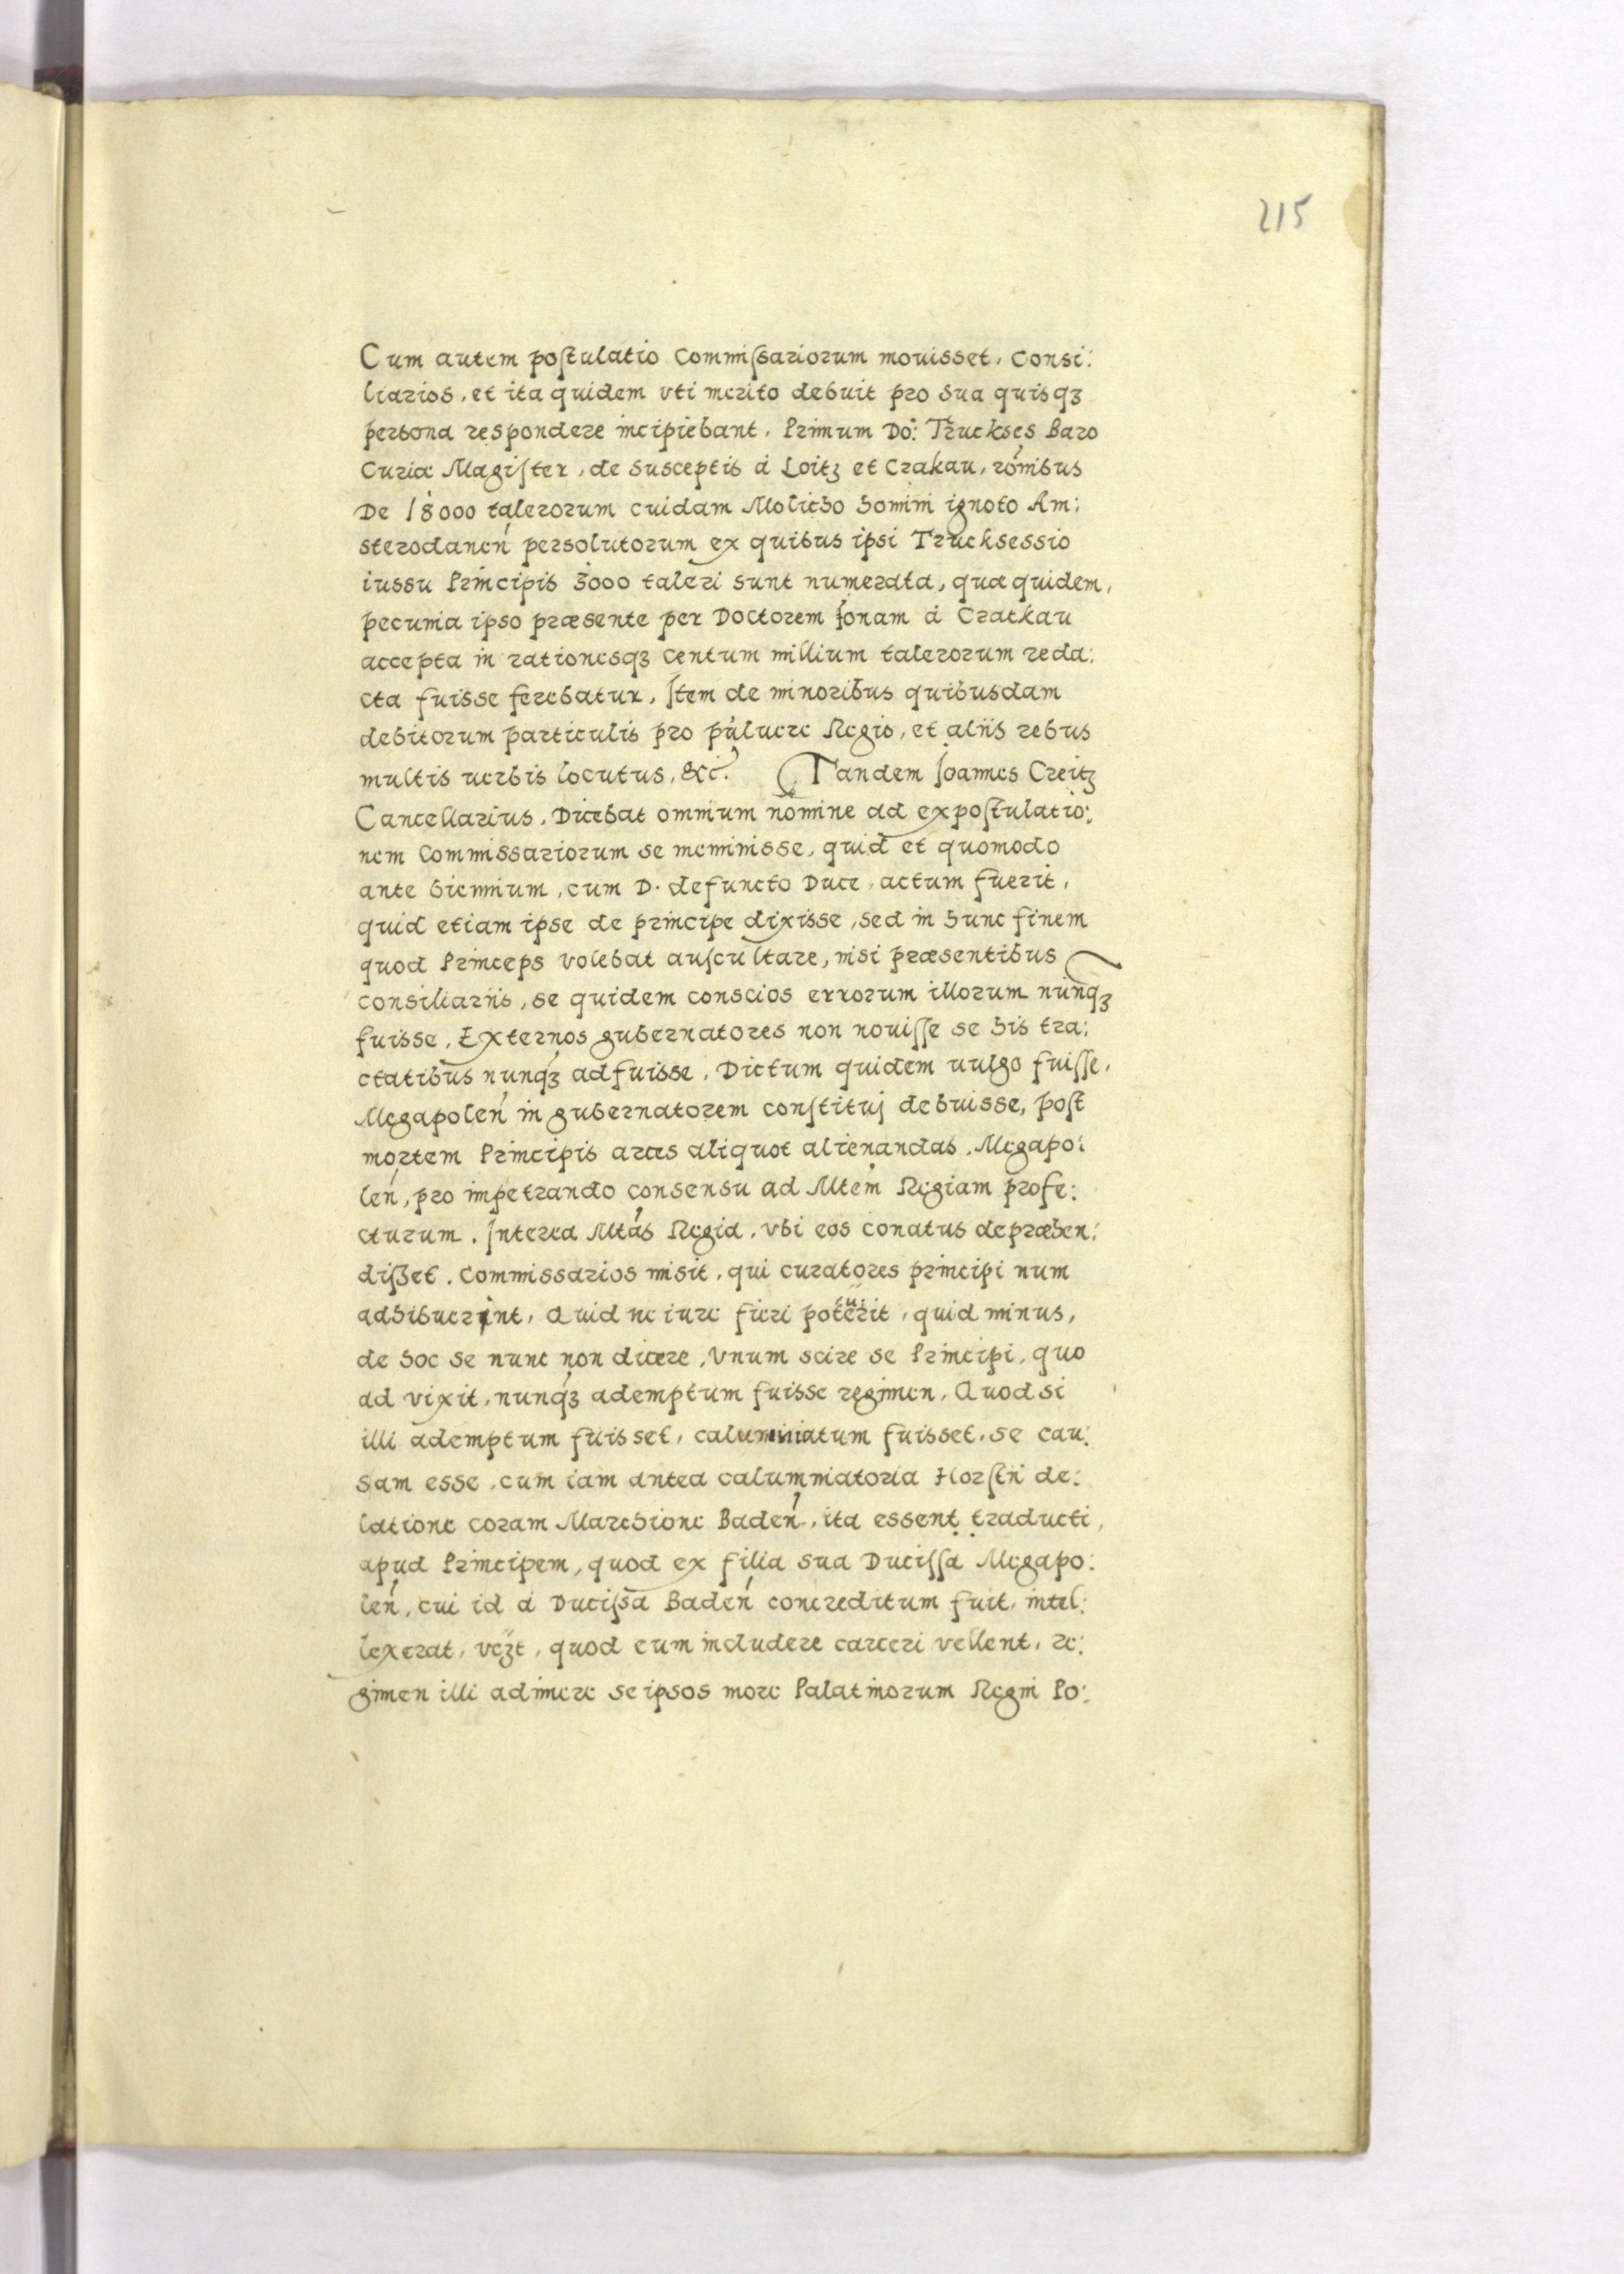 215
Cum autem postulatio Commissariorum mouisset, Consi:
liarios, et ita quidem vti merito debuit pro sua quisqȝ
persona respondere incipiebant. Primum Do: Truckses Baro
Curiæ Magister, de susceptis à Loitz et Crakau, rõnibus
De 18000 talerorum cuidam Molicho homini ignoto Am:
sterodamen̄ persolutorum ex quibus ipsi Trucksessio
iussu Principis 3000 taleri sunt numerata, quæ quidem,
pecunia ipso præsente per Doctorem Jonam à Cratkau
accepta in rationesqȝ centum millium talerorum reda:
cta fuisse ferebatur, Item de minoribus quibusdam
debitorum particulis pro puluere Regio, et aliis rebus
multis uerbis locutus, &c. Tandem Joannes Creitz
Cancellarius, Dicebat omnium nomine ad expostulatio:
nem Commissariorum se meminisse, quid et quomodo
ante biennium, cum D. defuncto Duce, actum fuerit,
quid etiam ipse de principe dixisse, sed in hunc finem
quod Princeps volebat auscultare, nisi præsentibus
consiliariis, se quidem conscios errorum illorum nunqȝ
fuisse. Externos gubernatores non nouisse se his tra:
ctatibus nunqȝ adfuisse. Dictum quidem uulgo fuisse,
Megapolen̄ in gubernatorem constituj debuisse, post
mortem Principis arces aliquot alienandas. Megapo:
len̄, pro impetrando consensu ad Mtem Regiam profe:
cturum. Interea Mtas Regia, vbi eos conatus depræhen:
disset. Commissarios misit, qui curatores principi num
adhibuerint, Quid ne iure fieri poterit, quid minus,
de hoc se nunc non dicere, Vnum scire se Principi, quo
ad vixit, nunqȝ ademptum fuisse regimen, Quod si
illi ademptum fuisset, calumniatum fuisset, se cau:
sam esse, cum iam antea calumniatoria Horstii de:
latione coram Marchione Baden̄, ita essent traducti,
apud Principem, quod ex filia sua Ducissa Megapo:
len̄, cui id à Ducissa Baden̄ concreditum fuit, intel:
lexerat, vezt, quod eum includere carceri vellent, re:
gimen illi adimere seipsos more Palatinorum Regni Po: